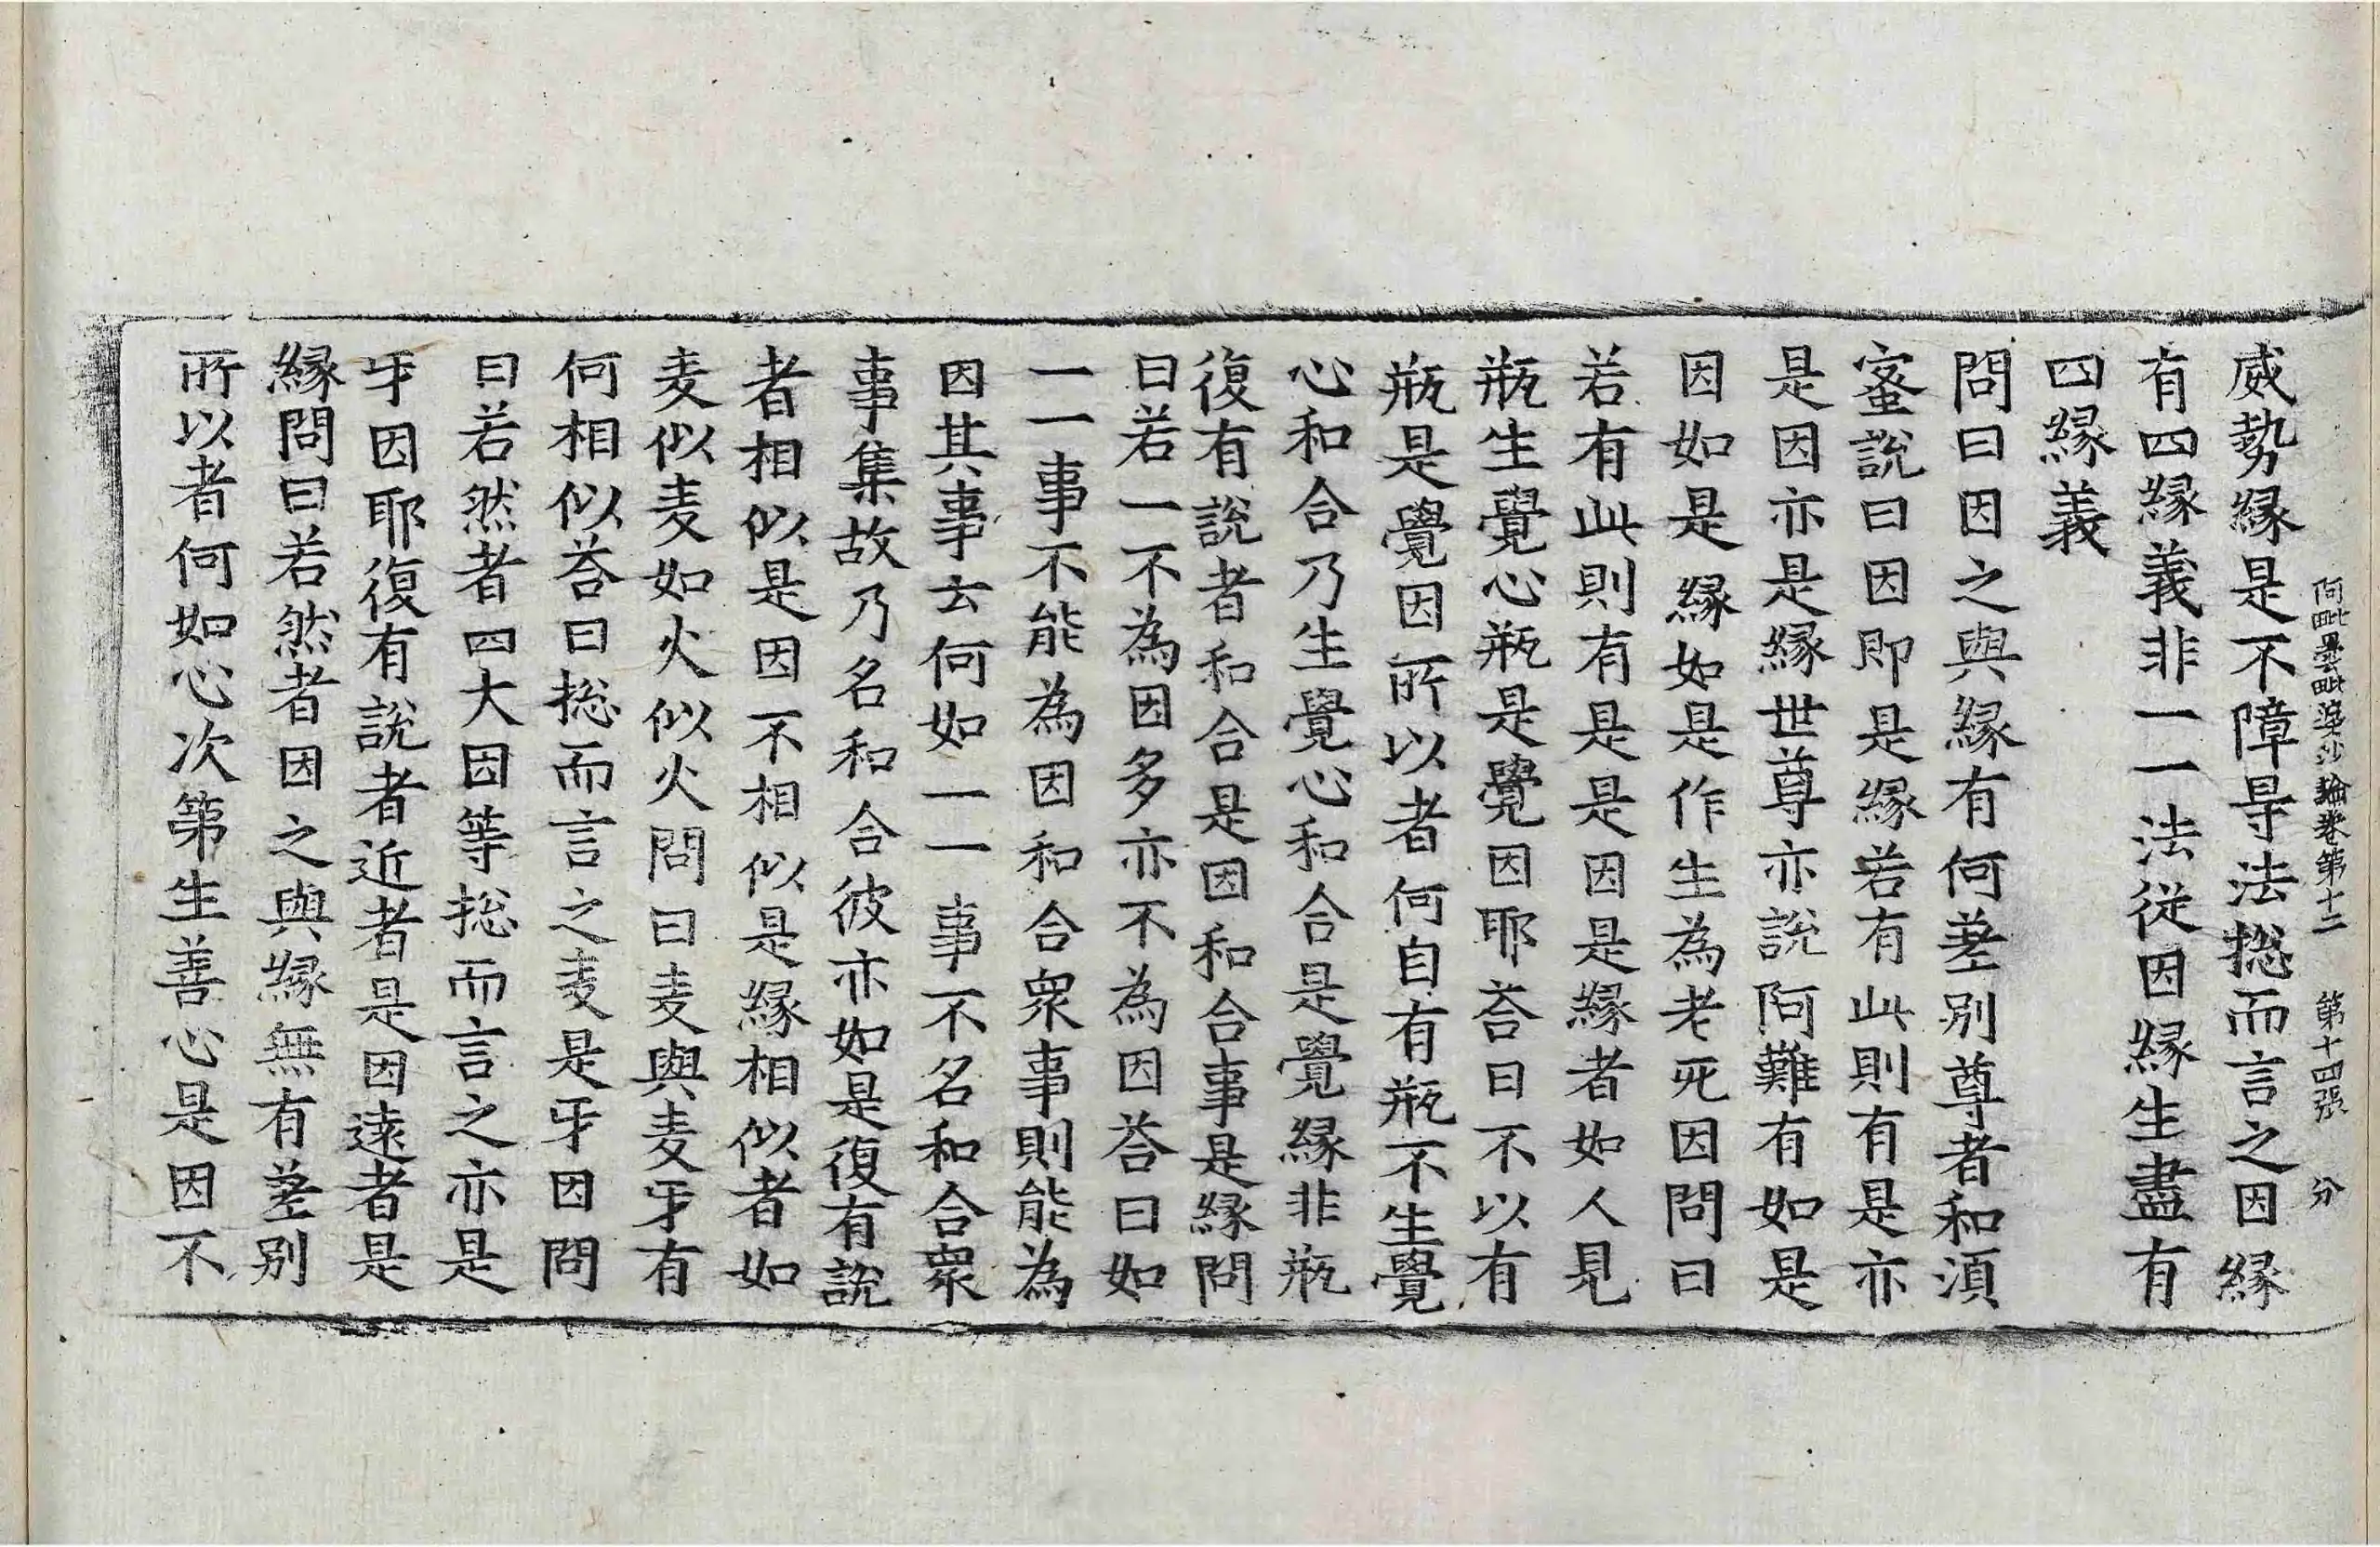 阿毗曇毗婆沙論卷第十二 第十四張 分
威勢緣是不障㝵法揔而言之因緣
有四緣義非一一法從因緣生盡有
四緣義
問曰因之與緣有何差別尊者和須
蜜說曰因即是緣若有此則有是亦
是因亦是緣世尊亦說阿難有如是
因如是緣如是作生為老死因問曰
若有此則有是是因是緣者如人見
瓶生覺心瓶是覺因耶荅曰不以有
瓶是覺因所以者何自有瓶不生覺
心和合乃生覺心和合是覺緣非瓶
復有說者和合是因和合事是緣問
曰若一不為因多亦不為因荅曰如
一一事不能為因和合眾事則能為
因其事云何如一一事不名和合眾
事集故乃名和合彼亦如是復有說
者相似是因不相似是緣相似者如
麦似麦如火似火問曰麦與麦牙有
何相似荅曰揔而言之麦是牙因問
曰若然者四大因等揔而言之亦是
牙因耶復有說者近者是因遠者是
緣問曰若然者因之與緣無有差別
所以者何如心次第生善心是因不